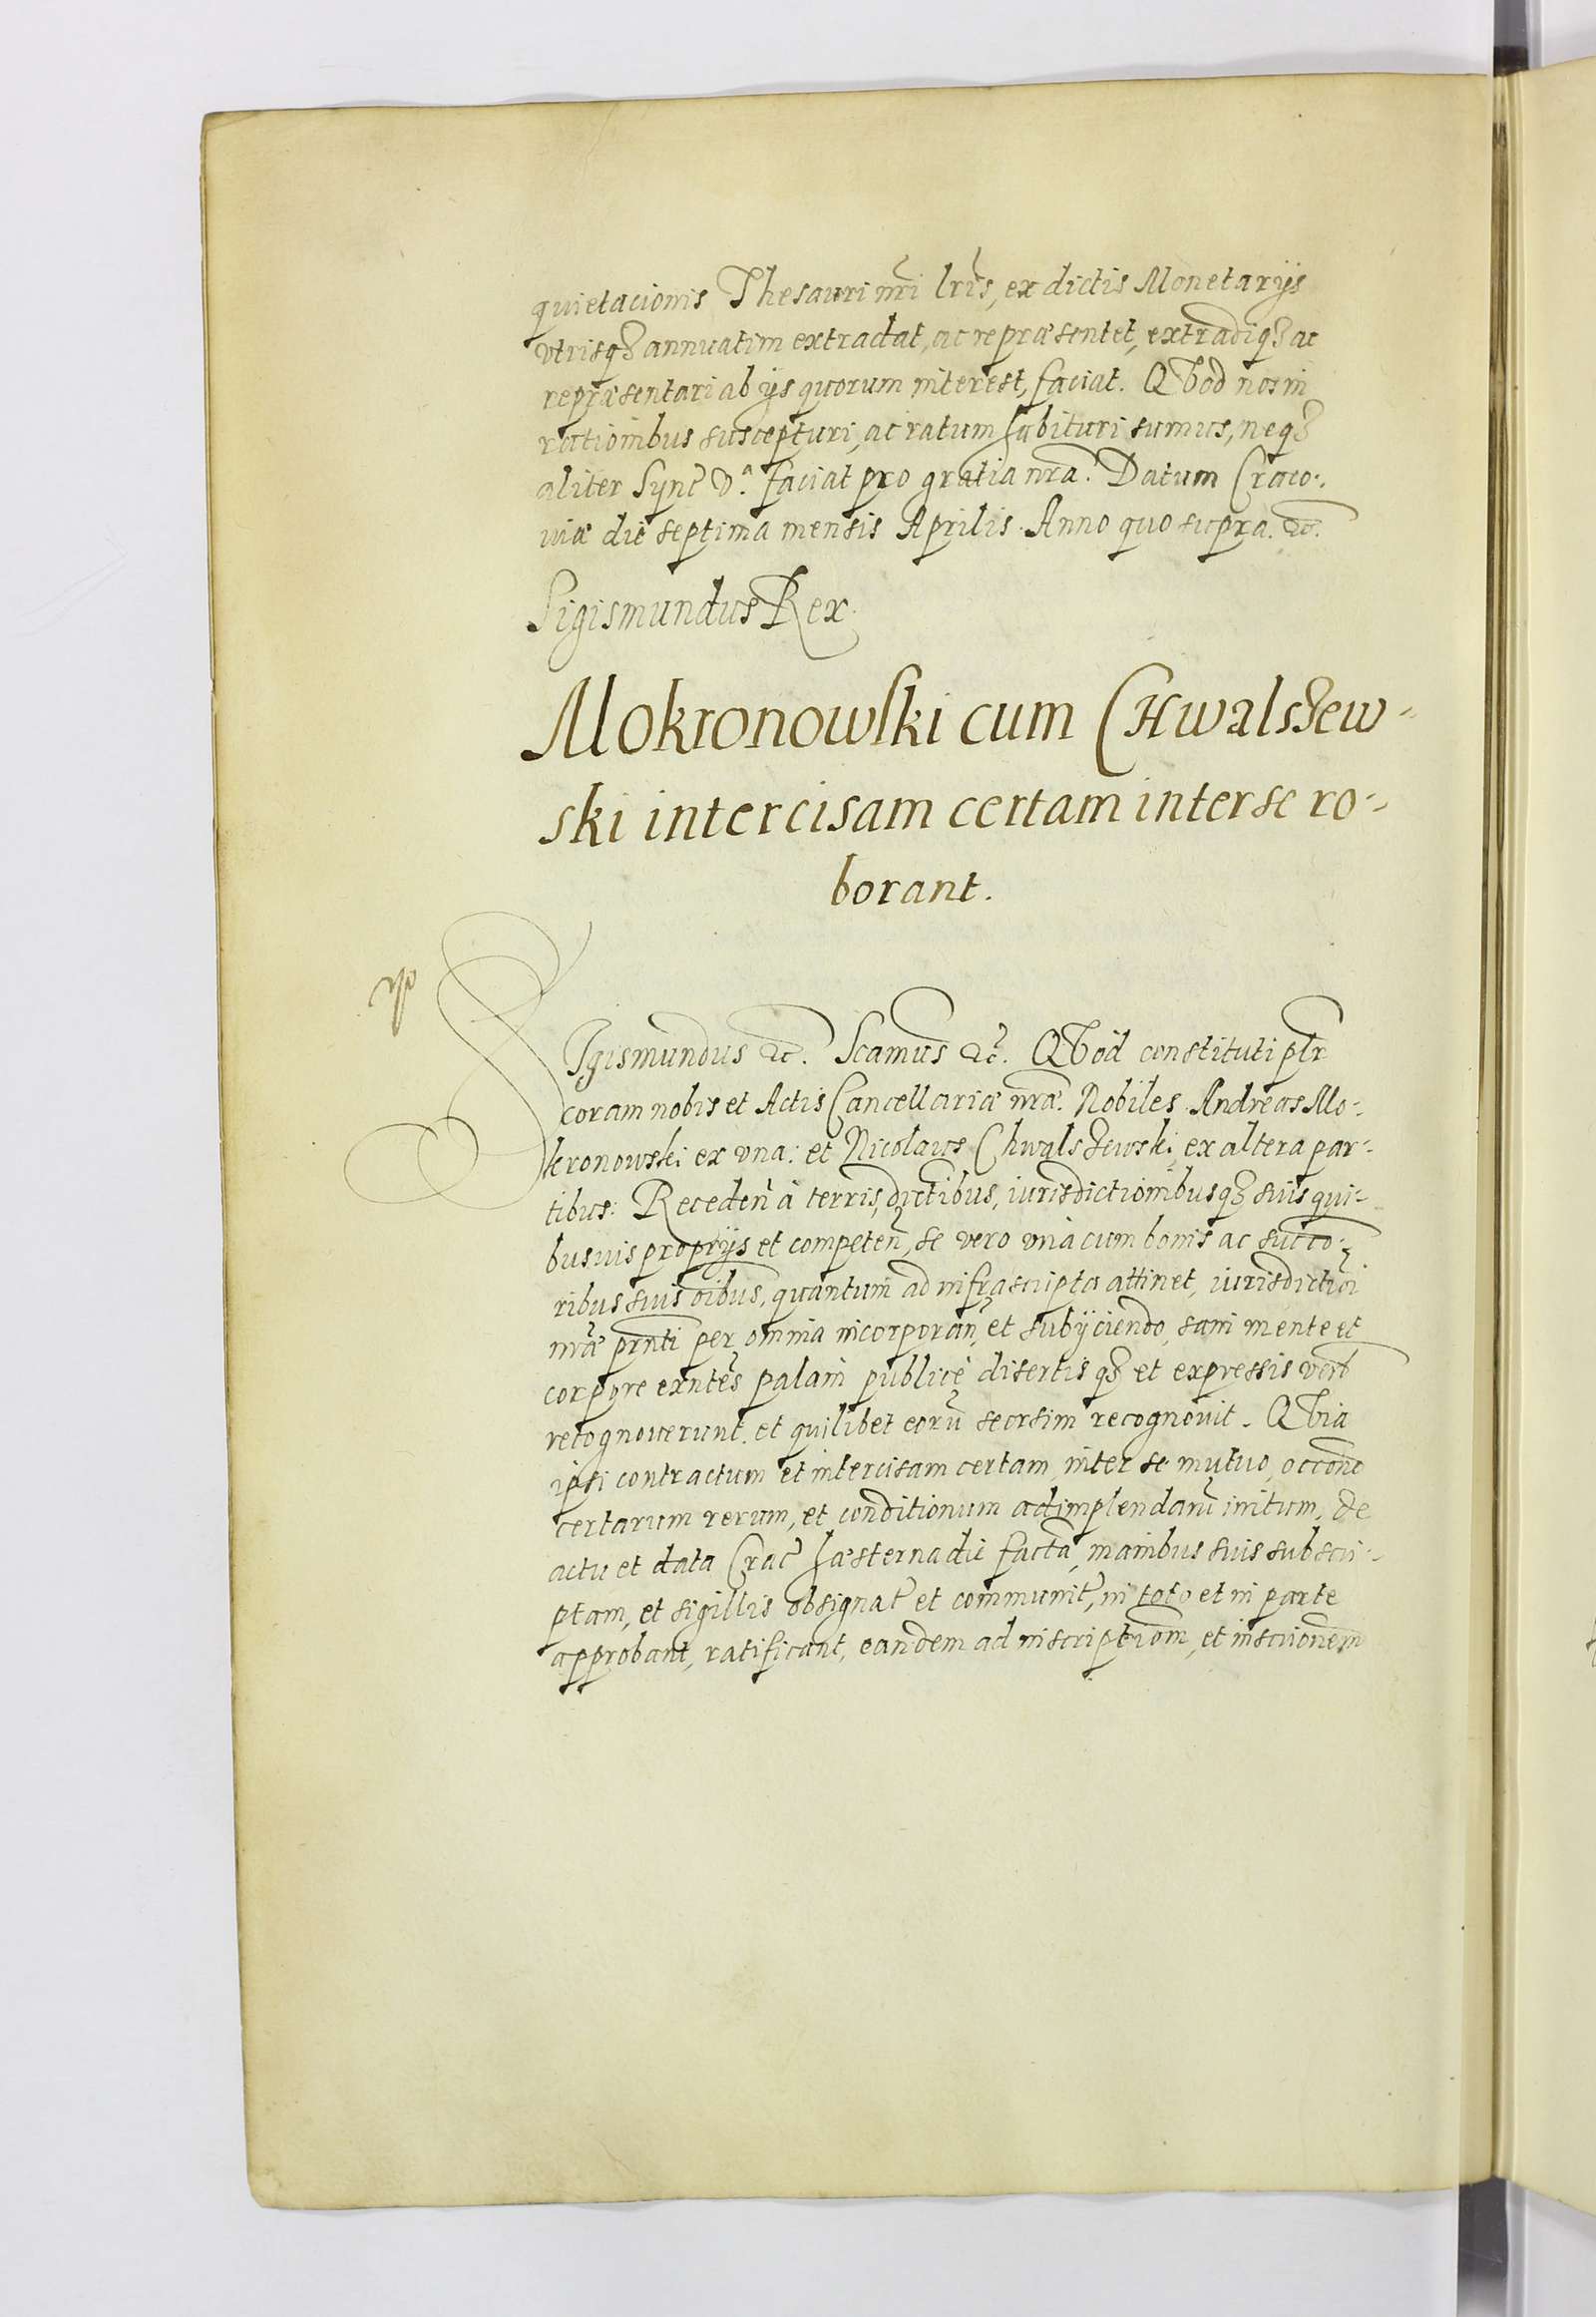 quietacionis Thesauri nri lris, ex dictis Monetarijs
vtrisqȝ annuatim extradat, ac repræsentet, extradiqȝ ac
repræsentari ab ijs quorum interest, faciat. QVod nos in
rationibus suscepturi, ac ratum habituri sumus, neqȝ
aliter Sync V.ª faciat pro gratia nra. Datum Craco-
uiæ die septima mensis Aprilis Anno quo supra. &c.
Sigismundus Rex
Mokronowski cum CHwalszew-
ski intercisam certam inter se ro-
borant.
SIgismundus &c. Scamus &c. QVod constituti plr
coram nobis et Actis Cancellariæ nræ. Nobiles Andreas Mo-
kronowski ex vna: et Nicolaus Chwalszewski ex altera par-
tibus: Receden à terris, dictibus, iurisdictionibusqȝ suis qui-
busuis proprijs et competen, se vero vnà cum bonis ac succo-
ribus suis oibus, quantum ad infrascripta attinet, iurisdictioi
nræ prnti per omnia incorporan, et subijciendo, sani mente et
corpore exntes palam publicè disertisqȝ et expressis verb
recognouerunt. et quilibet eoru seorsim recognouit. QVia
ipsi contractum et intercisam certam inter se mutuo, occone
certarum rerum, et conditionum adimplendaru initum, de
actu et data Crac hæsterna die facta, manibus suis subscri-
ptam, et sigillis obsignat et communit, in toto et in parte
approbant, ratificant, eandem ad inscriptiom, et inscrionem